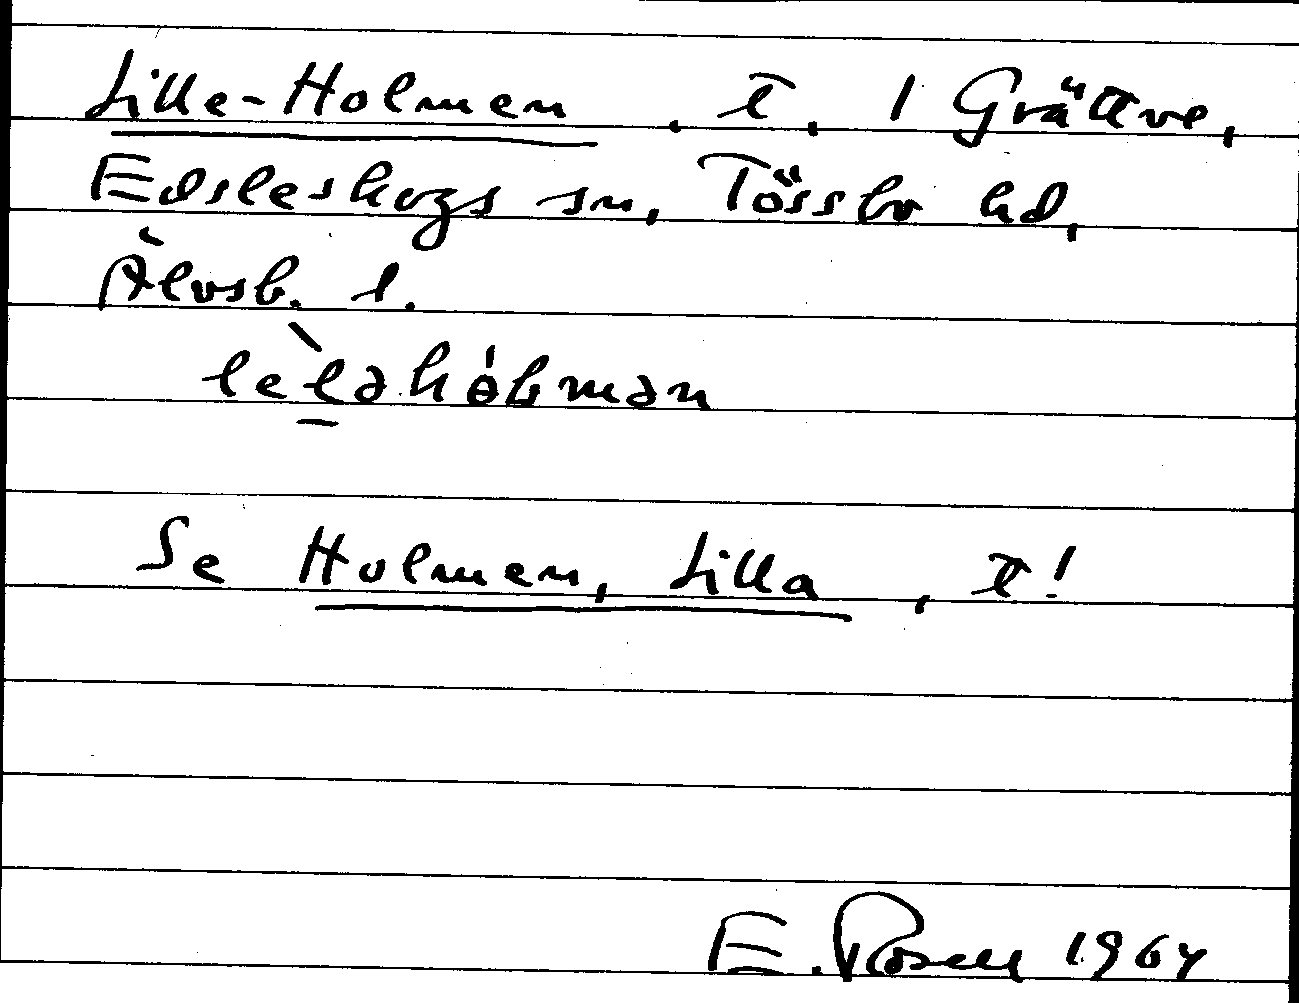 Lille-Holmen, t. 1 Grättve,
Edsleskogs sn, Tössbo hd,
Älvsb. l.
Se Holmen, Lilla, t!
E. Rosell 1964